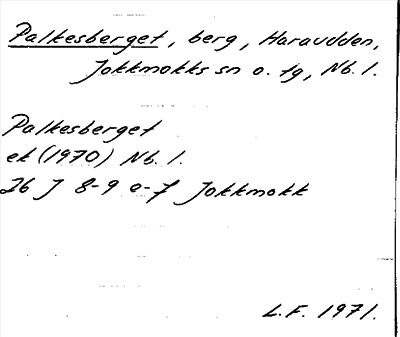 Palkesberget, berg, Haraudden,
Jokkmokks sn o. tg, Nb. l.
Palkesberget
ek (1970) Nb. l.
26 J 8-9 e-f Jokkmokk
L.F. 1971.